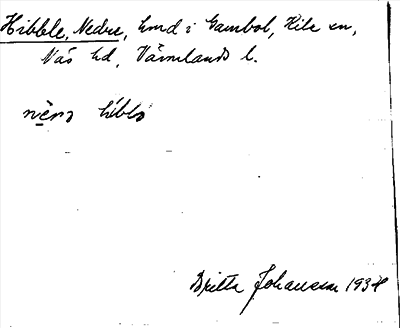 Hibble, Nedre, hmd i Gambol, Kila sn,
Näs hd, Värmlands l.
Britta Johansson 1934